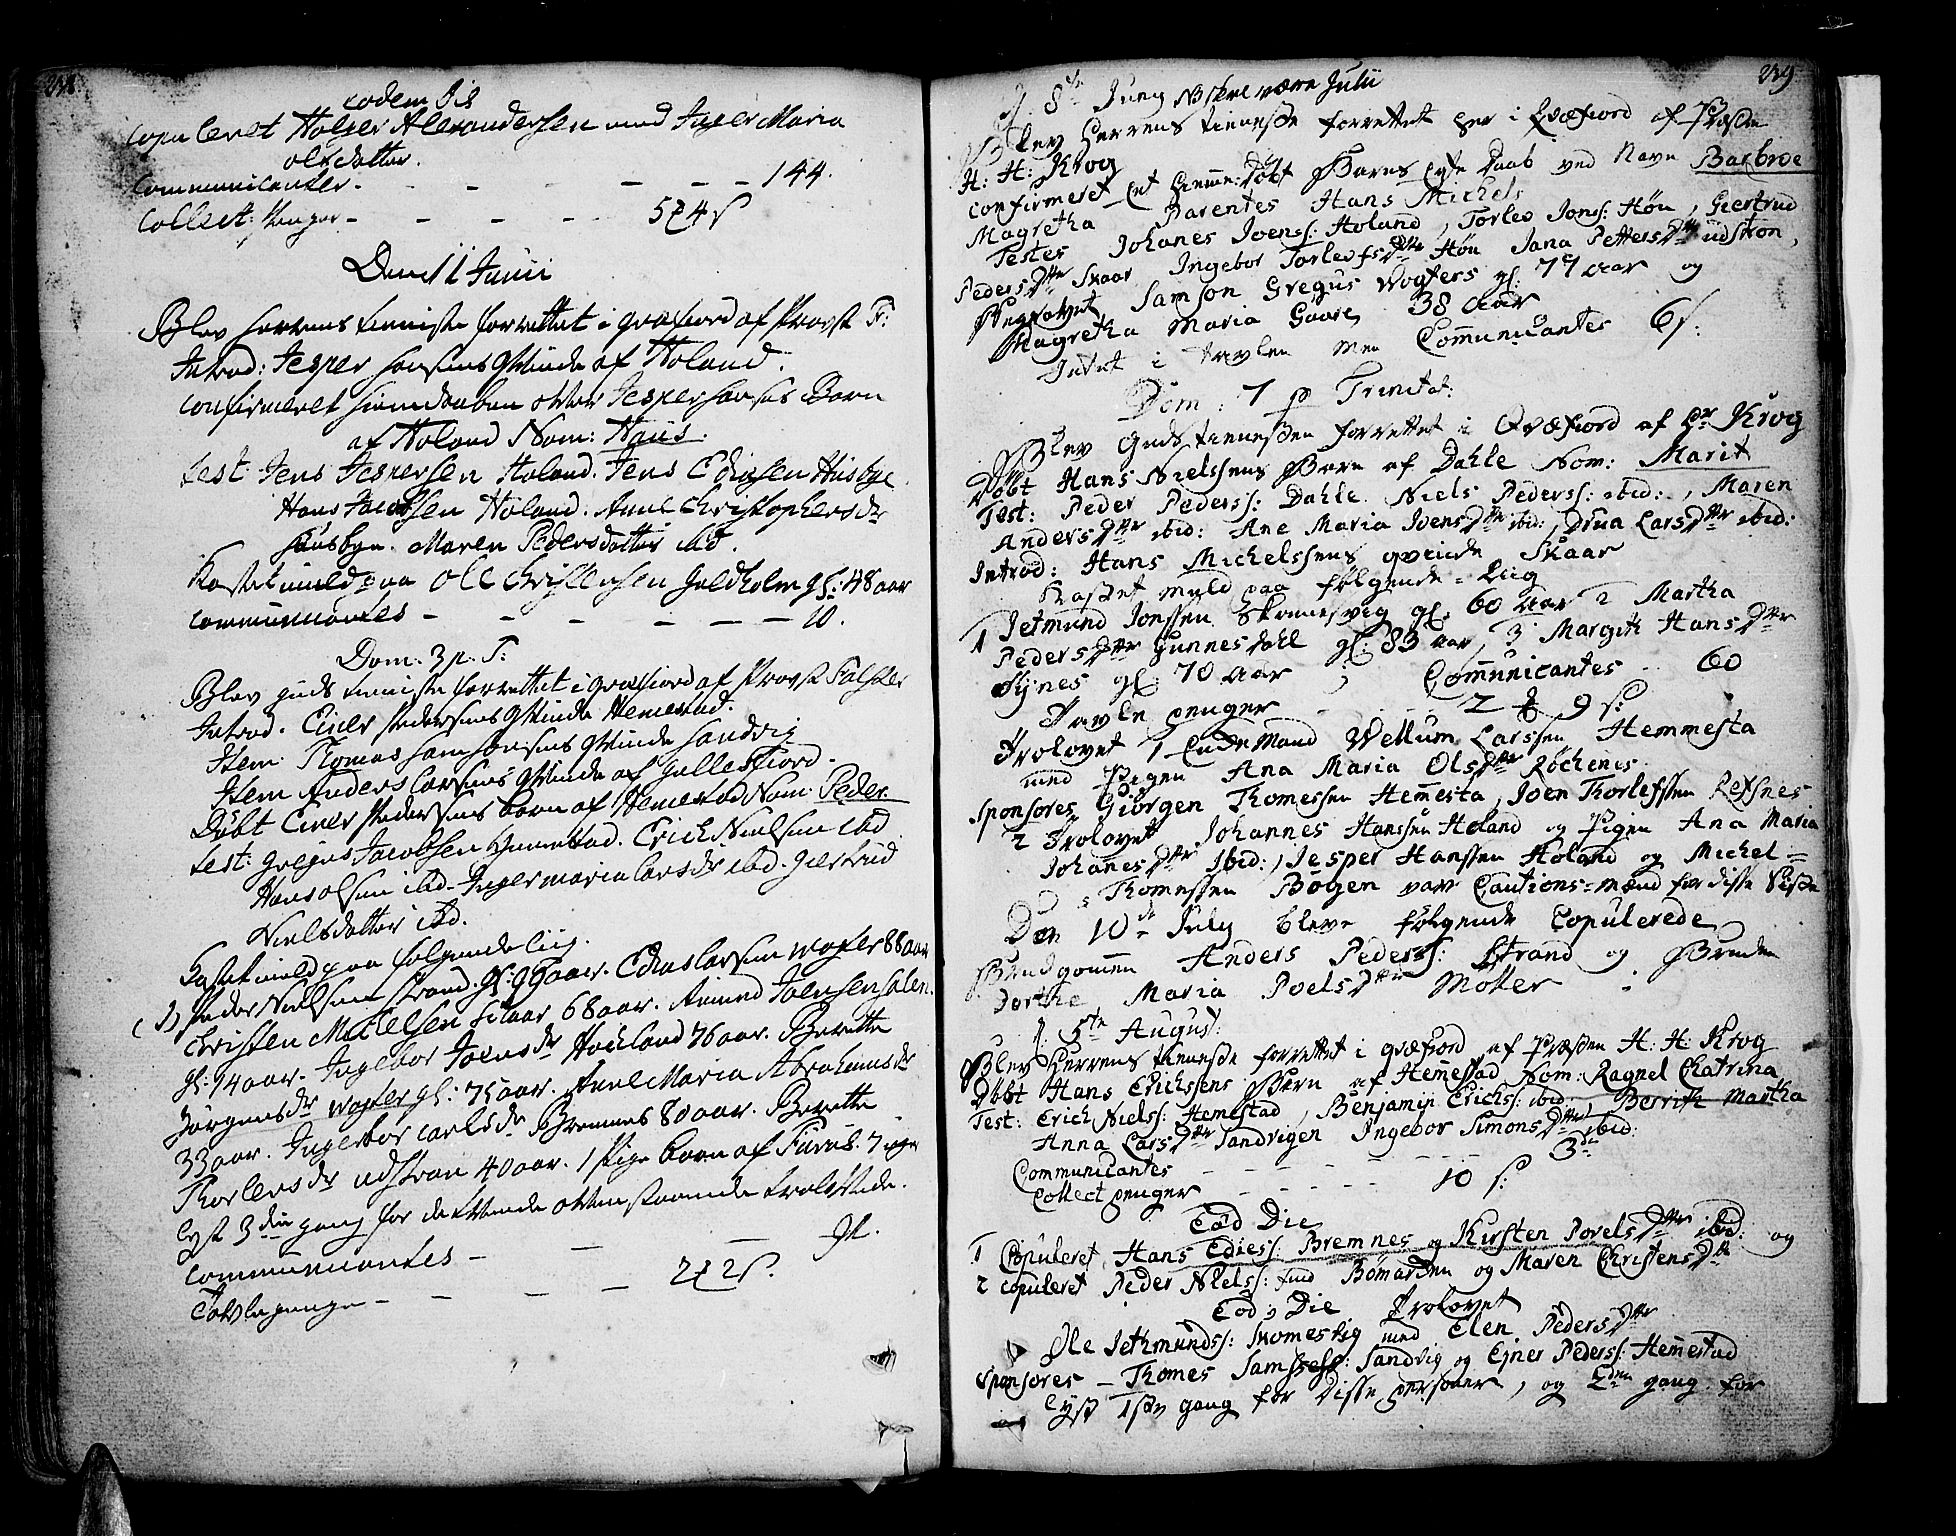 238.
eodem die
copuleret Holger Alexandersen med Inger Maria
olsdatter.
Communicanter - - - - - - - 144.
Collect: Penger - - - - 5 # 4 s
Den 11 Junii
Blev Herrens tieniste forrettet i Qvæfiord af Provst F:
Introd: Jesper Hansens Qvinde af Holand.
confirmeret hiemdaaben over Jesper Hansens Barn
af Holand Nom: Hans.
test: Jens Jespersen Holand. Jens Ediassen Husbye
Hans Jacobsen Holand. Anne Christophersdr
Husbye. Maren Pedersdatter ibd.
Kastet muld paa Ole Christensen Goldholm gl: 48 aar
communicantes - - - - - - 10.
Dom: 3 p. T:
Blev guds tieniste forrettet i Qvæfiord af Provst Falster
Introd. Einer Pedersens Qvinde Hemestad.
Item: Thomas Samsonsens Qvinde Sandvig
Item Anders Larsens Qvinde af Gullesfiord.
Døbt Einer Pedersens barn af Hemestad Nom: Peder.
test: Gregus Jacobsen Hemestad. Erich Nielsen ibd
Hans olsen ibd. Inger maria Larsdr ibd. giertrud
Nielsdatter ibd.
Kastet muld paa følgende liig.
(1) Peder Nielsen Strand. gl: 99 aar. Edias Larsen Voxter 88 aar
Christen Michelsen Skaar 68 aar. Amund Joensen Salen.
gl: 74 aar. Ingebor Joensdr Houland 76 aar. Berette
Jørgensdr Woxter gl: 75 aar. Anne Maria Abrahamsdr
33 aar. Ingebor Carlsdr Bremnes 80 aar. Berette
Thorlersdr udstran 40 aar. 1 Pige barn af 7 uger
Lyst 3die gang for de tvende ovenstaaende trolovede.
communicantes - - - 91.
Tavlepenge - - - - 2 # 2 s.
239
J. 8de Juny NB skal være Julii
Blev Herrens tieneste forrettet her i Qvæfiord af Præsten
H: H: Krog
confirmeret Et hieme: Døbt Barns Egte Daab ved Navn Barbroe
Magretha Parentes Hans Michels
Testes Johanes Joenss: Holand, Torlev Jonss: Høu, Giertrud
Peders Dtter Skaar Ingebor Torlevfs Dtter Høu Jana Petters Dtter udstron,
Begravet, Samson Gregus Wogters gl: 77 aar og
Magretha Maria Gaare, 38 Aar
Intet i tavlen men Communicantes 6 s:
Dom: 7 p Trinitat:
Blev Guds tienesten forrettet i Qvæfiord af Hr Krog
Døbt Hans Nielssens Barn af Dahle Nom: Marit
Test: Peder Pederss: Dahle. Niels Pederss: ibid:, Maren
Anders Dtter ibid: Ane Maria Joens Dtter ibid:, Drua Lars Dtter ibid:
Introd: Hans Michelssens qvinde Skaar
Kastet muld paa følgende Liig
1 Jetmund Jonssen Skomesvig gl. 60 Aar 2 Martha
Peders Dtter Gunnesdahl gl: 83 aar, 3 Margith Hans Dtter
Fynes gl: 70 Aar ; Communicantes 60
Tavle penger - - - 2 # 9 s:
Trolovet 1 Enckemand Wellum Larssen Hemmesta
med Pigen Ana Maria Ols Dtter Røchenes
Sponsores Giørgen Thomessen Hemesta, Joen Thorlefssen Refsnes
2 Trolovet Johannes Hanssen Holand og Pigen Ana Maria
Johanes Dtter Ibid:, Jesper Hanssen Holand og Michel
Thomessen Bøgen var Cautions-mænd for disse Sidste
Den 10de July bleve følgende Copulerede
Brudgommen Anders Pederss: Strand og Bruden
Dorthe, Maria Poels Dtter Møller
J. 5te August:
Blev Herrens tieneste forrettet i qvæfiord af Præsten H: H: Krog
Døbt Hans Erichssens Barn af Hemestad Nom: Ragnel Chatrina
Test: Erich Nielss: Hemestad, Benjamin Erichss: ibid: Berrith Martha
Anna Lars Dtter Sandvigen Ingebor Simons Dtter ibid:
Communicantes - - - - - - 3de
Collect penger - - - - - 10 s:
Eod Die
1 Copuleret, Hans Ediess: Bremnes og Kirsten Povels Dtter ibid: og
2 copuleret Peder Nielss: find Bømarken og Maren Christens Dtr
Eod: Die Trolovet
Ole Jethmundss: Skomesvig med Elen Peders Dtter
Sponsores - Thomes Samssess: Sandvig og Ejner Pederss: Hemestad
Lyst 1ste gang for Disse personer, og 2den gang for